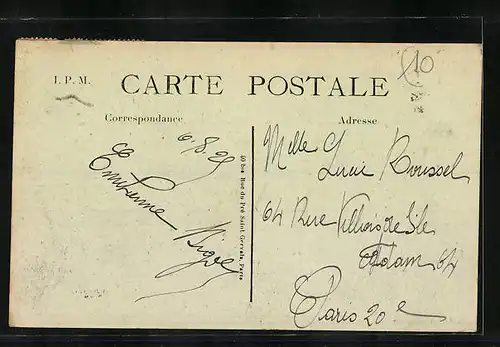 I. P. M.
CARTE POSTALE
10
Correspondance
Adresse
6.8.25
40 bis Rue du Pré Saint Gervais, Paris
Melle Lucie Roussel
64 Rue Villiers de l'Isle
Adam 64
Paris 20e